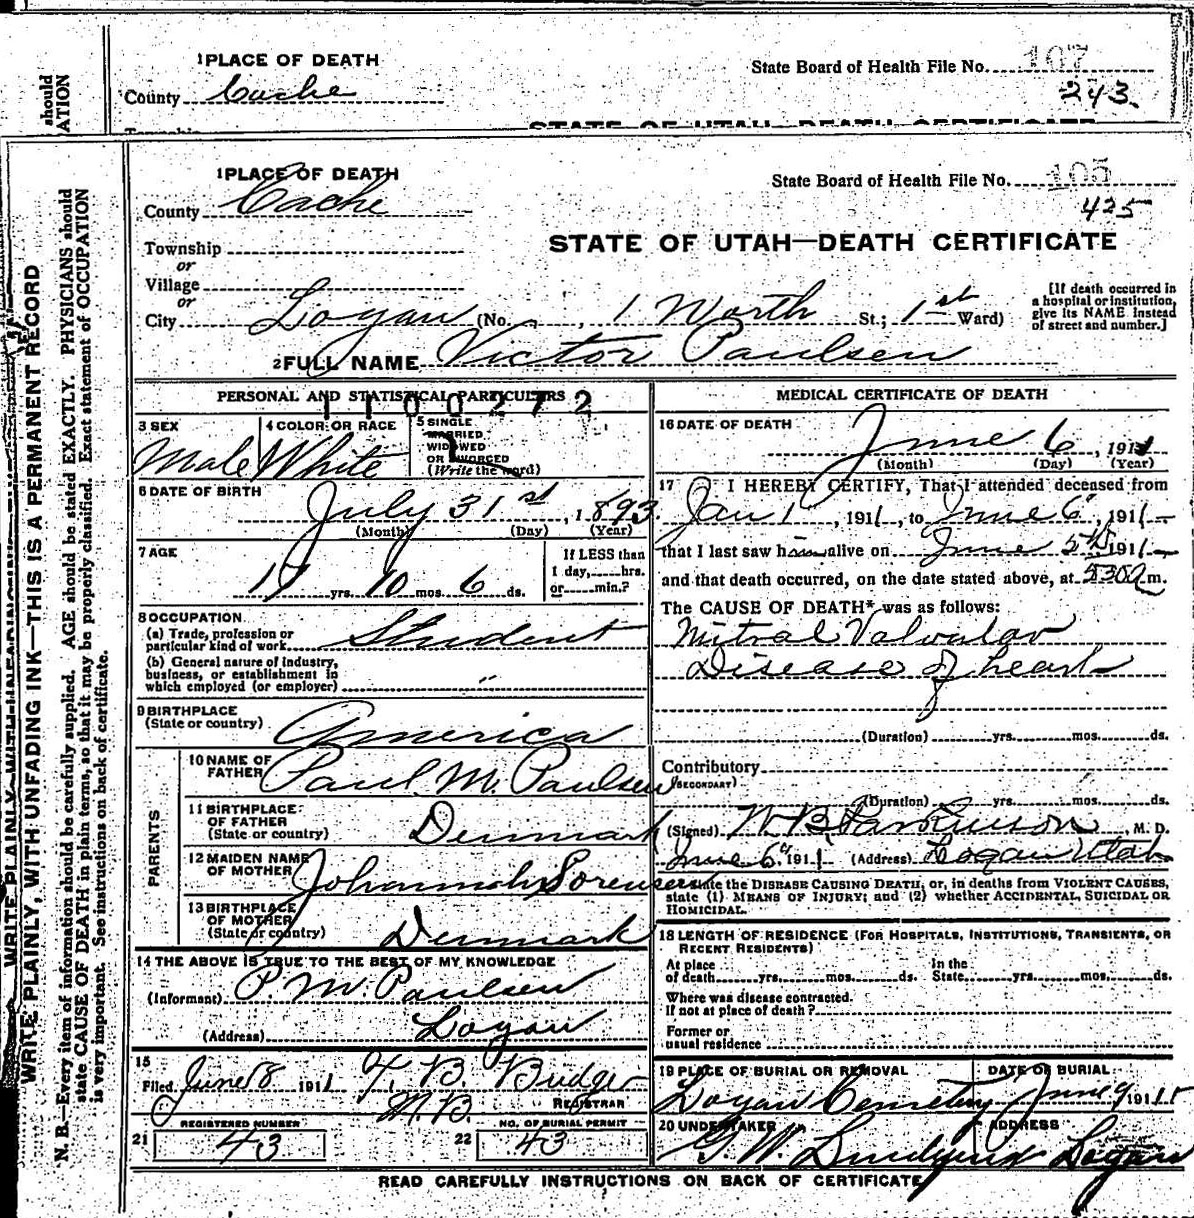 1 PLACE OF DEATH
State Board of Health File No. 107
County Cache
243.
should
ATION
Township
STATE OF UTAH—DEATH CERTIFICATE
1 PLACE OF DEATH
State Board of Health File No. 105
County Cache
425
STATE OF UTAH—DEATH CERTIFICATE
Township
or
Village
or
City Logan (No. , 1 Worth St.; 1st Ward)
[If death occurred in a hospital or institution, give its NAME instead of street and number.]
2 FULL NAME Victor Paulsen
PERSONAL AND STATISTICAL PARTICULARS
1100272
3 SEX
Male
4 COLOR OR RACE
White
5 SINGLE
MARRIED
WIDOWED
OR DIVORCED
(Write the word)
6 DATE OF BIRTH
July 31st, 1893.
(Month) (Day) (Year)
7 AGE
17 yrs. 10 mos. 6 ds.
If LESS than
1 day, hrs.
or min.?
8 OCCUPATION
(a) Trade, profession or
particular kind of work Student
(b) General nature of industry,
business, or establishment in
which employed (or employer) "
9 BIRTHPLACE
(State or country) America
PARENTS
10 NAME OF
FATHER Paul M. Paulsen
11 BIRTHPLACE
OF FATHER
(State or country) Denmark
12 MAIDEN NAME
OF MOTHER Johannah Sorensen
13 BIRTHPLACE
OF MOTHER
(State or country) Denmark
14 THE ABOVE IS TRUE TO THE BEST OF MY KNOWLEDGE
(Informant) P. M. Paulsen
(Address) Logan
15
Filed June 8 1911 F. B. Budge
M. B. REGISTRAR
REGISTERED NUMBER
21 43
NO. OF BURIAL PERMIT
22 43
MEDICAL CERTIFICATE OF DEATH
16 DATE OF DEATH
June 6, 1911
(Month) (Day) (Year)
17 I HEREBY CERTIFY, That I attended deceased from
Jan 1, 1911, to June 6, 1911
that I last saw him alive on June 5th 1911
and that death occurred, on the date stated above, at 530a m.
The CAUSE OF DEATH* was as follows:
Mitral Valvular
Disease of heart
(Duration) yrs. mos. ds.
Contributory
(SECONDARY)
(Duration) yrs. mos. ds.
(Signed) W B Parkinson, M. D.
June 6, 1911 (Address) Logan Utah
state the DISEASE CAUSING DEATH, or, in deaths from VIOLENT CAUSES,
state (1) MEANS OF INJURY; and (2) whether ACCIDENTAL, SUICIDAL OR
HOMICIDAL.
18 LENGTH OF RESIDENCE (FOR HOSPITALS, INSTITUTIONS, TRANSIENTS, OR
RECENT RESIDENTS)
At place
of death yrs. mos. ds.
In the
State yrs. mos. ds.
Where was disease contracted.
If not at place of death?
Former or
usual residence
19 PLACE OF BURIAL OR REMOVAL
Logan Cemetery
DATE OF BURIAL
June 9 1911
20 UNDERTAKER
G. W. Lindquist
ADDRESS
Logan
READ CAREFULLY INSTRUCTIONS ON BACK OF CERTIFICATE
WRITE PLAINLY, WITH UNFADING INK—THIS IS A PERMANENT RECORD
N. B.—Every item of information should be carefully supplied. AGE should be stated EXACTLY. PHYSICIANS should
state CAUSE OF DEATH in plain terms, so that it may be properly classified. Exact statement of OCCUPATION
is very important. See instructions on back of certificate.